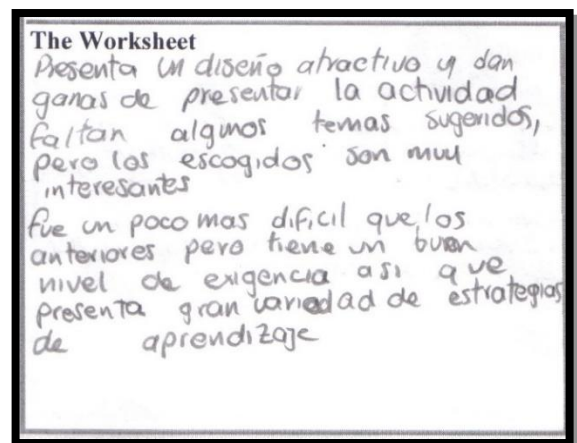 The Worksheet
Presenta un diseño atractivo y dan
ganas de presentar la actividad
faltan algunos temas sugeridos,
pero los escogidos son muy
interesantes
fue un poco mas dificil que los
anteriores pero tiene un buen
nivel de exigencia asi que
presenta gran variedad de estrategias
de aprendizaje